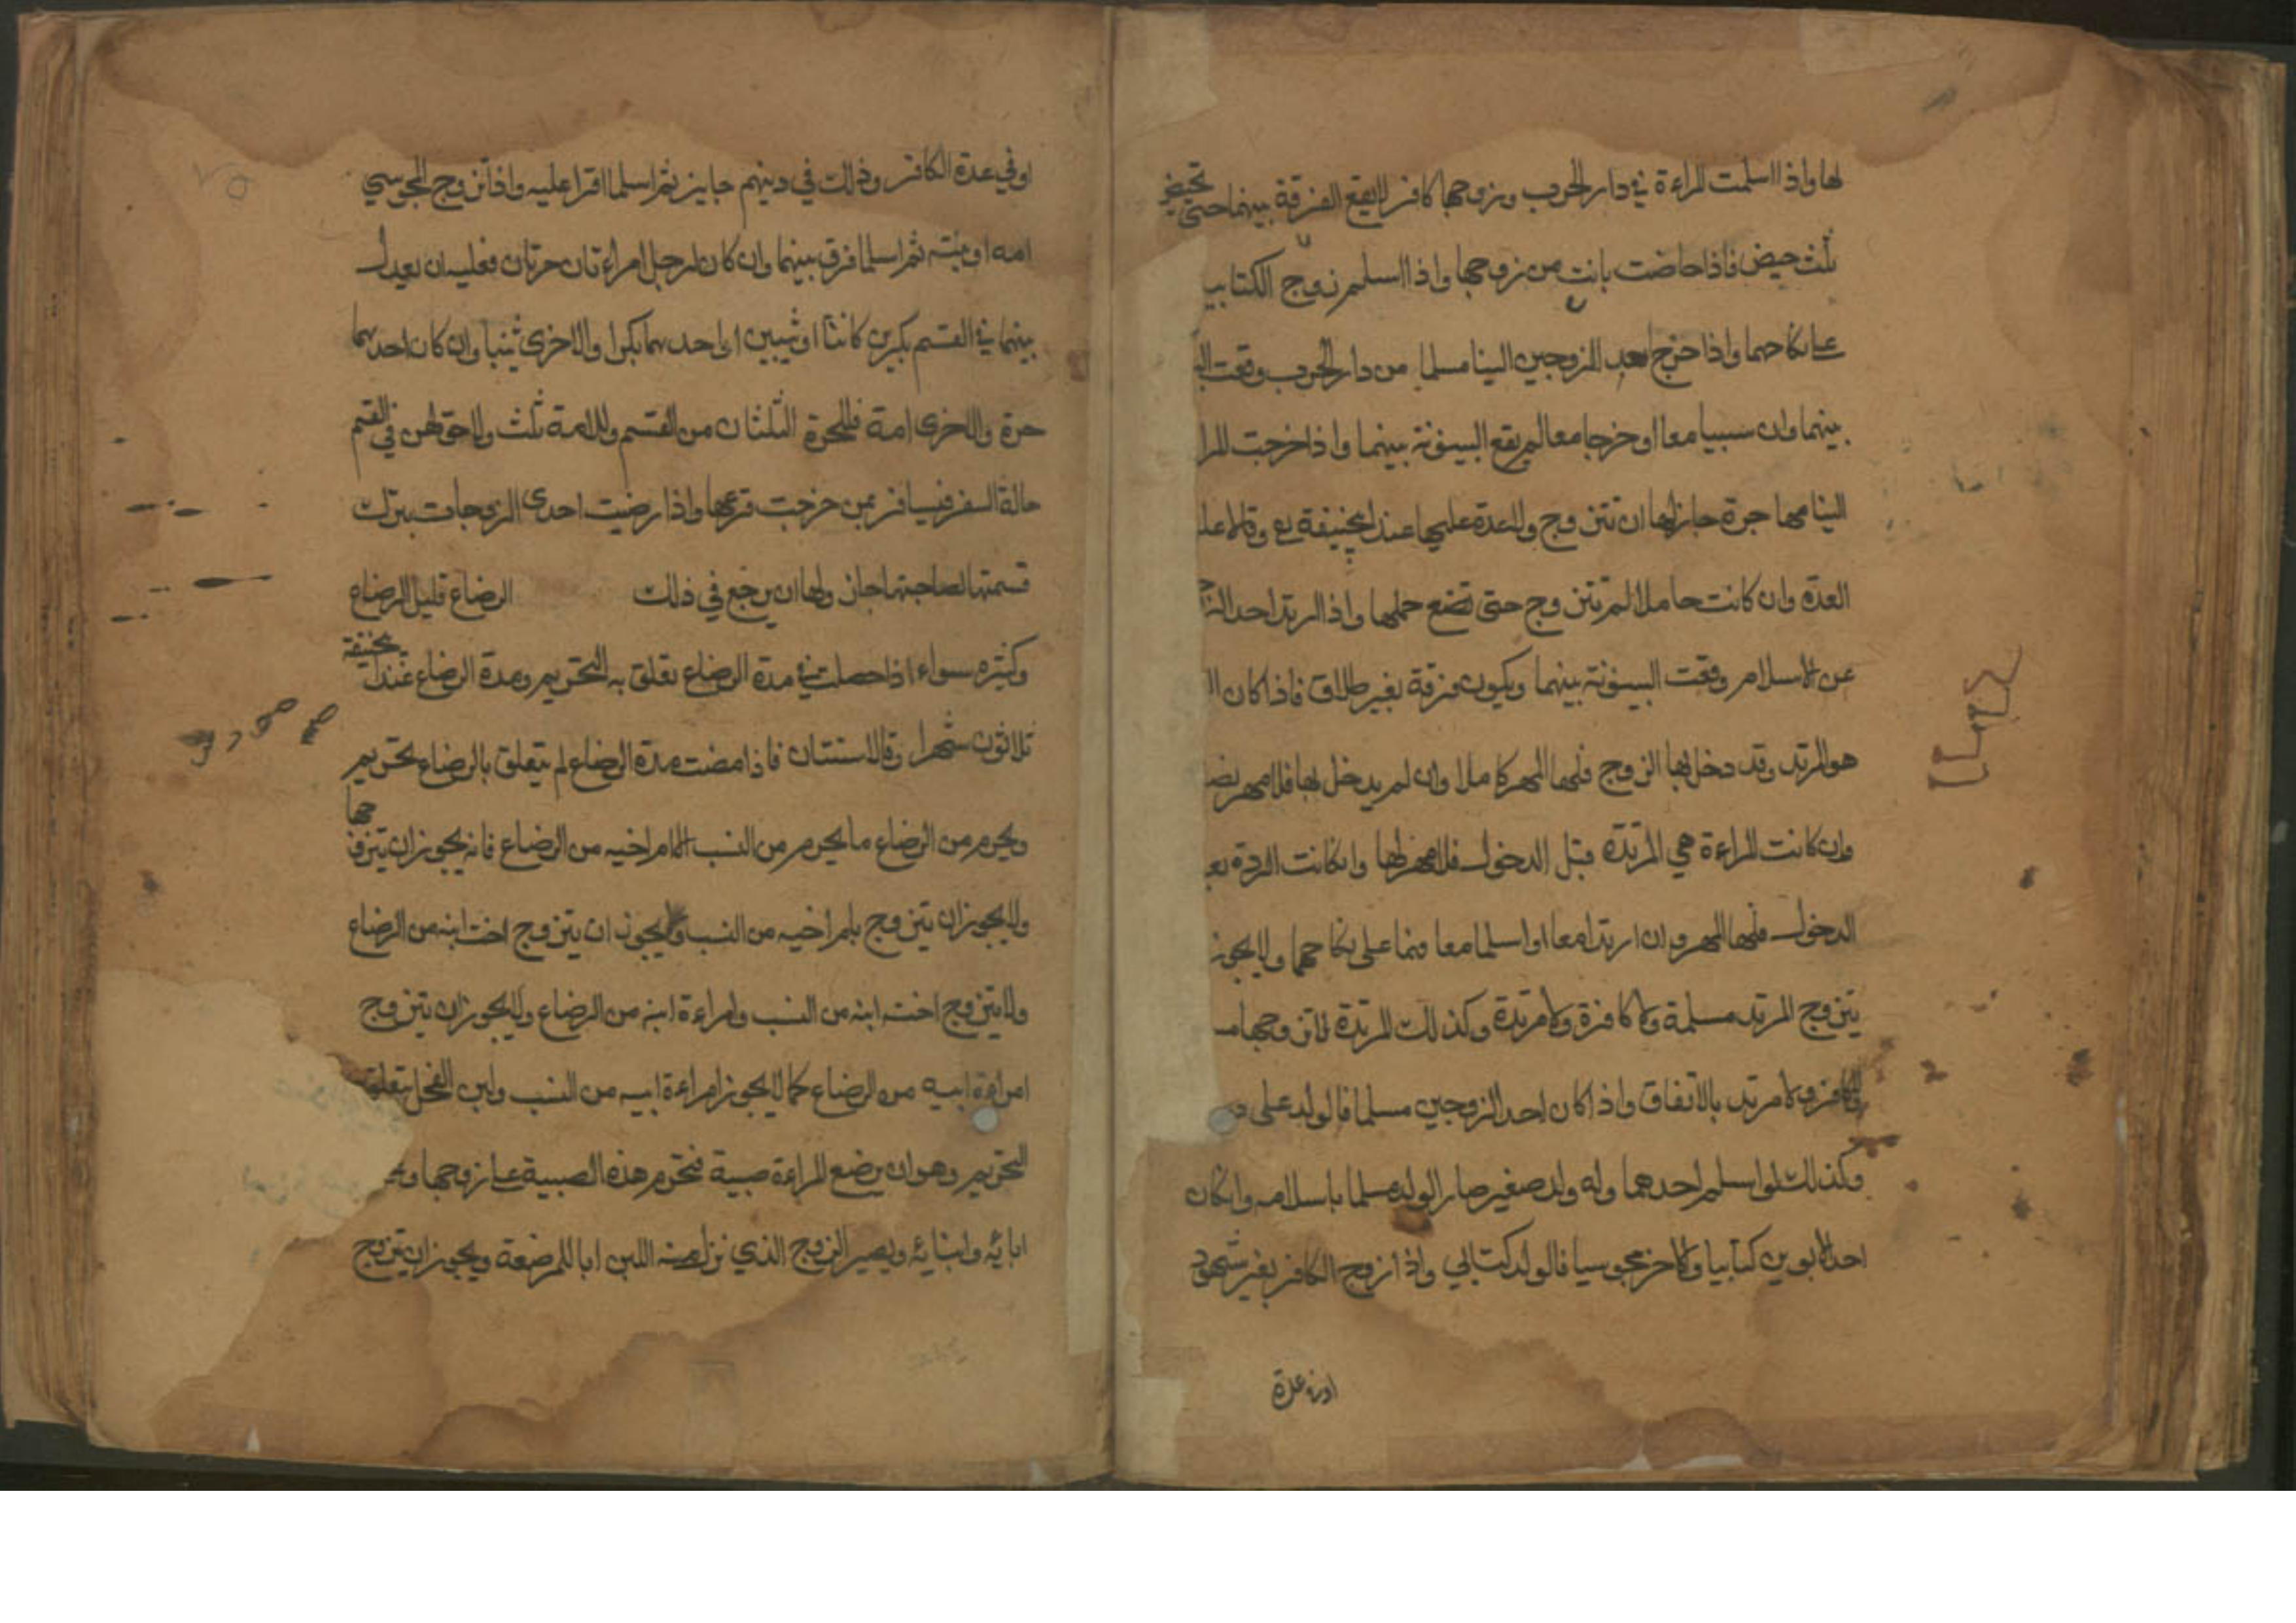 لها واذا اسلمت المراءة في دار الحرب وزوجها كافر لا يقع الفرقة بينهما حتى تحيض
ثلث حيض فاذا حاضت بانت من زوجها واذا اسلم زوج الكتابية
على نكاحهما واذا خرج احد الزوجين الينا مسلما من دار الحرب وقعت
بينهما وان سبيا معا او خرجا معا لم يقع البينونة بينهما واذا خرجت المرا
الينا مهاجرة جاز لها ان تتزوج ولا عدة عليها عند ابيحنيفة رح وقالا عليـ
العدة وان كانت حاملا لم تتزوج حتى تضع حملها واذا ارتد احد
عن الاسلام وقعت البينونة بينهما ويكون فرقة بغير طلاق فاذا كان
هو المرتد وقد دخل بها الزوج فلها المهر كاملا وان لم يدخل بها فلا مهر
وان كانت المراءة هي المرتدة قبل الدخول فلا مهر لها وانكانت الردة بعـ
الدخول فلها المهر وان ارتدا معا او اسلما معا فهما على نكاحهما ولا يجوز
يتزوج المرتد مسلمة ولا كافرة ولا مرتدة وكذلك المرتدة لا تزوجها مسـ
ولا كافر ولا مرتد بالاتفاق واذا كان احد الزوجين مسلما فالولد على د
وكذلك لو اسلم احدهما وله ولد صغير صار الولد مسلما باسلامه وانكان
احد الابوين كتابيا والاخر مجوسيا فالولد كتابي واذا زوج الكافر بغير شهود
او في عدة
او في عدة الكافر وذلك في دينهم جايز ثم اسلما اقرا عليه واذا تزوج المجوسي
امه او بنته ثم اسلما فرق بينهما وان كان لرجل امراءتان حرتان فعليه ان يعدل
بينهما في القسم بكرين كانتا او ثيبين او احدهما بكرا والاخرى ثيبا وان كان احدهما
حرة والاخرى امة فللحرة الثلثان من القسم وللامة ثلث ولا حق لهن في القسم
حالة السفر فيسافر بمن خرجت قرعها واذا رضيت احدى الزوجات بترك
قسمتها لصاحبتها جاز ولها ان يرجع في ذلك الرضاع قليل الرضاع
وكثيره سواء اذا حصلت في مدة الرضاع تعلق به التحريم ومدة الرضاع عند ابيحنيفة
ثلاثون شهرا وقالا سنتان فاذا مضت مدة الرضاع لم يتعلق بالرضاع تحريم
ويحرم من الرضاع ما يحرم من النسب الا ام اخيه من الرضاع فانه يجوز ان يتزوجها
ولا يجوز ان يتزوج بام اخيه من النسب ويجوز ان يتزوج اخت ابنه من الرضاع
ولا يتزوج اخت ابنه من النسب وامراءة ابنه من الرضاع ولا يجوز ان يتزوج
امراءة ابيه من الرضاع كما لا يجوز امراءة ابيه من النسب ولبن الفحل يتعلق
التحريم وهو ان يرضع المراءة صبية فتحرم هذه الصبية على زوجها و
ابائه وابنائه ويصير الزوج الذي نزل منه اللبن ابا للمرضعة ويجوز ان يتزوج